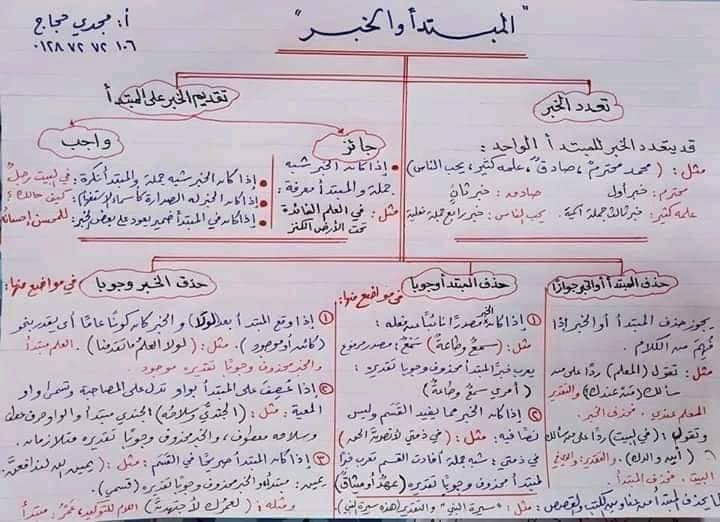 "المبتدأ والخبر"
أ: مجدي حجاج
٠١٢٨ ٧٢ ٧٢ ١٠٦
تعدد الخبر
قد يتعدد الخبر للمبتدأ الواحد:
مثل: (محمد محترمٌ، صادقٌ، علمه كثير، يحب الناس)
محترم: خبر أول صادق: خبر ثانٍ
علمه كثير: خبر ثالث جملة اسمية. يحب الناس: خبر رابع جملة فعلية
تقديم الخبر على المبتدأ
جائز
إذا كان الخبر شبه
جملة والمبتدأ معرفة:
مثل: في العلم الفائدة
تحت الأرض الكنز
واجب
إذا كان الخبر شبه جملة والمبتدأ نكرة: في البيت رجلٌ
إذا كان الخبر له الصدارة كأسماء الاستفهام: كيف حالك؟
إذا كان في المبتدأ ضمير يعود على بعض الخبر: للمحسن إحسانه
حذف المبتدأ أو الخبر جوازًا
يجوز حذف المبتدأ أو الخبر إذا
فُهِمَ من الكلام.
مثل: تقول (المعلم) ردًا على من
سألك (مَنْ عندك؟) والتقدير
المعلم عندي. فحذف الخبر.
وتقول: (في البيت) ردًا على من سألك
(أين والدك)، والتقدير: والدي في
البيت، فحذف المبتدأ.
حذف المبتدأ وجوبا
في مواضع منها:
١ إذا كان الخبر مصدرًا نائبًا عن فعله:
مثل: (سمعٌ وطاعةٌ) سَمْعٌ: مصدر مرفوع
يعرب خبرًا لمبتدأ محذوف وجوبًا تقديره:
(أمري سمعٌ وطاعةٌ)
٢ إذا كان الخبر مما يفيد القَسَم وليس
نصًا فيه: مثل: (في ذمتي لأنصرنَّ الحق)
في ذمتي: شبه جملة أفادت القسم تعرب خبرًا
لمبتدأ محذوف وجوبًا تقديره (عهدٌ أو ميثاقٌ)
حذف الخبر وجوبا
في مواضع منها:
١ إذا وقع المبتدأ بعد (لولا) والخبر كان كونًا عامًا أي يقدر بنحو
(كائن أو موجود). مثل: (لولا العلمُ ما تقدمنا). العلم مبتدأ
والخبر محذوف وجوبًا تقديره موجود
٢ إذا عُطِفَ على المبتدأ بواو تدل على المصاحبة وتسمى واو
المعية: مثل: (الجنديُّ وسلاحُه) الجندي مبتدأ والواو حرف عطف
وسلاحه معطوف، والخبر محذوف وجوبًا تقديره متلازمان.
٣ إذا كان المبتدأ صريحًا في القسم: مثل: (يمين الله لندافعنَّ).
يمين: مبتدأ، والخبر محذوف وجوبًا تقديره (قسمي)
ومثله: (لعمرك لأجتهدنَّ) اللام للتوكيد، عَمْرُ: مبتدأ
يحذف المبتدأ من عناوين الكتب والقصص: مثل: "سيرة النبي" والتقدير (هذه سيرة النبي).